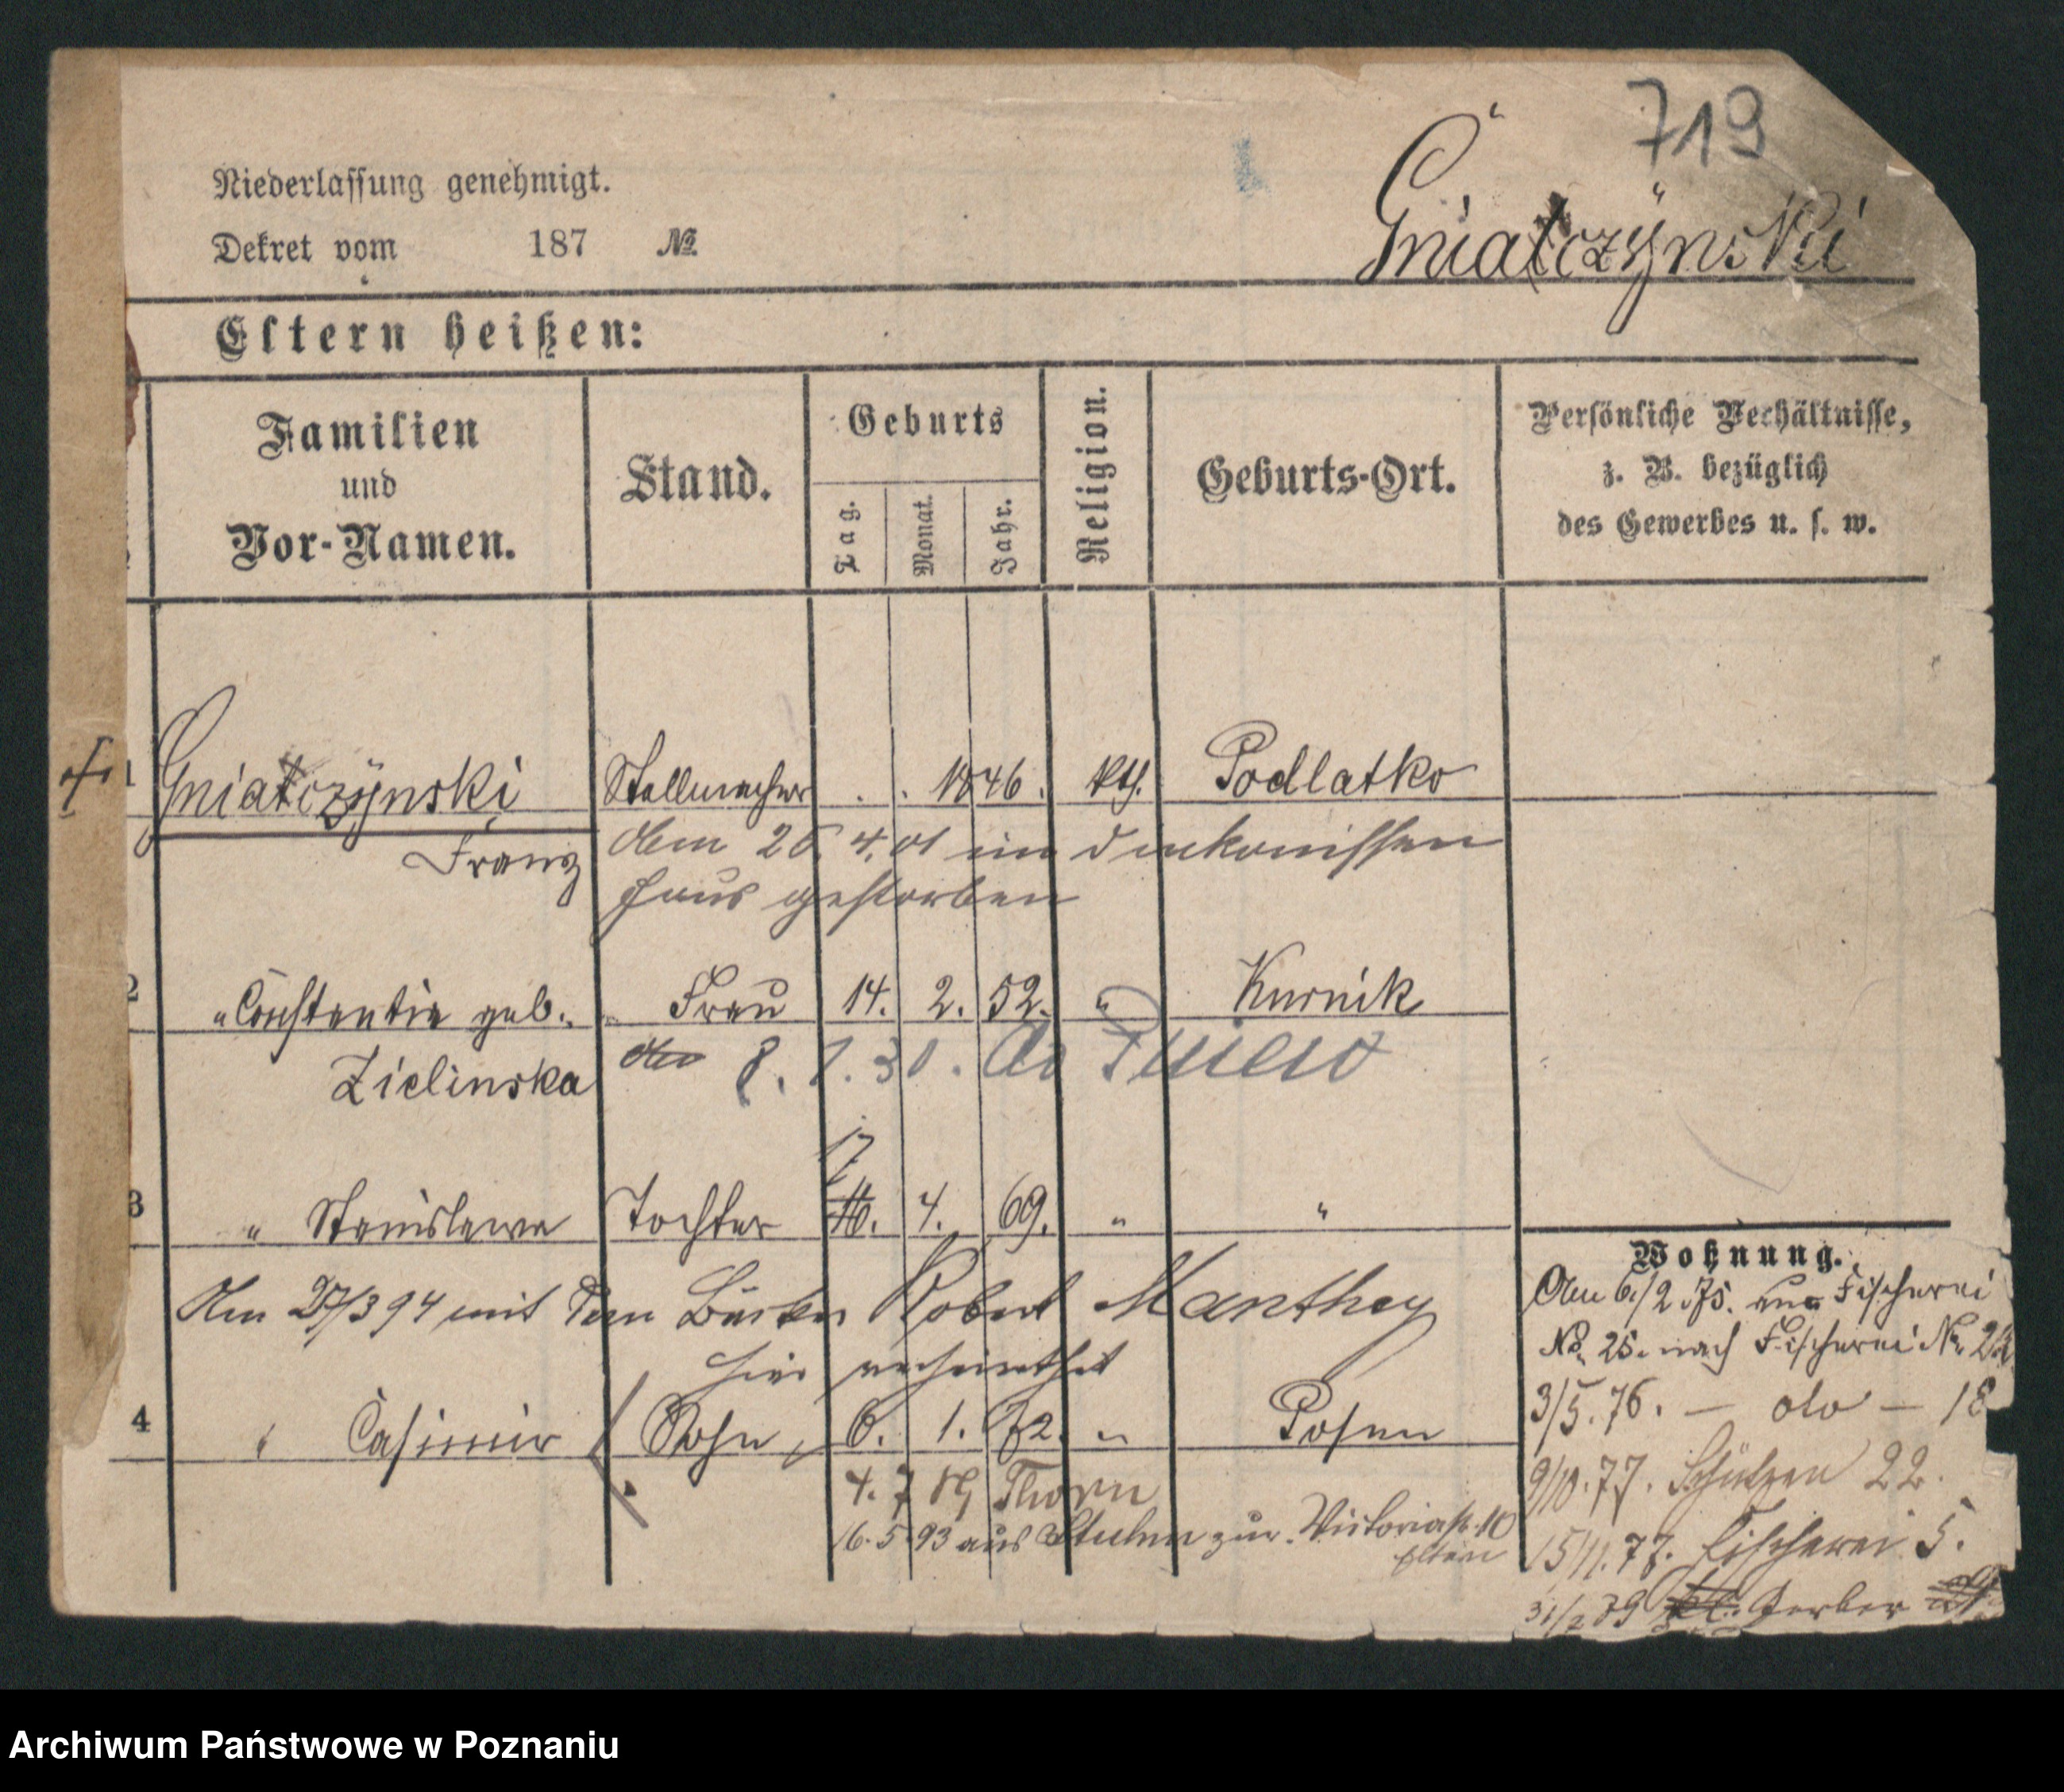 719
Niederlassung genehmigt.
Dekret vom 187 №
Gniatczÿnski
Eltern heißen:
Familien
und
Vor-Namen.
Stand.
Geburts
Tag.
Monat.
Jahr.
Religion.
Geburts-Ort.
Persönliche Verhältnisse,
z. B. bezüglich
des Gewerbes u. s. w.
1 Gniatczÿnski Stellmacher . . 1846. kth. Podlatko
Franz den 26. 4. 01 im Diakonissen
haus gestorben
2 " Constantia geb. Frau 14. 2. 52. " Kurnik
Zielinska 8. 1. 30.
17
3 " Stanislawa Tochter 16. 4. 69. " "
Am 27/3 94 mit dem Bäcker Robert Manthey
hier verheirathet
4 " Casimir Sohn 6. 1. 72. " Posen
4. 7 89 Thorn
16. 5. 93 aus zur. Victoriastr. 10
Eltern
Wohnung.
Am 6/2 75. aus Fischerei
No. 25. nach Fischerei No
3/5. 76. — do — 18
9/10. 77. Schützen 22.
15/11. 77. Fischerei 5.
Gerber
Archiwum Państwowe w Poznaniu